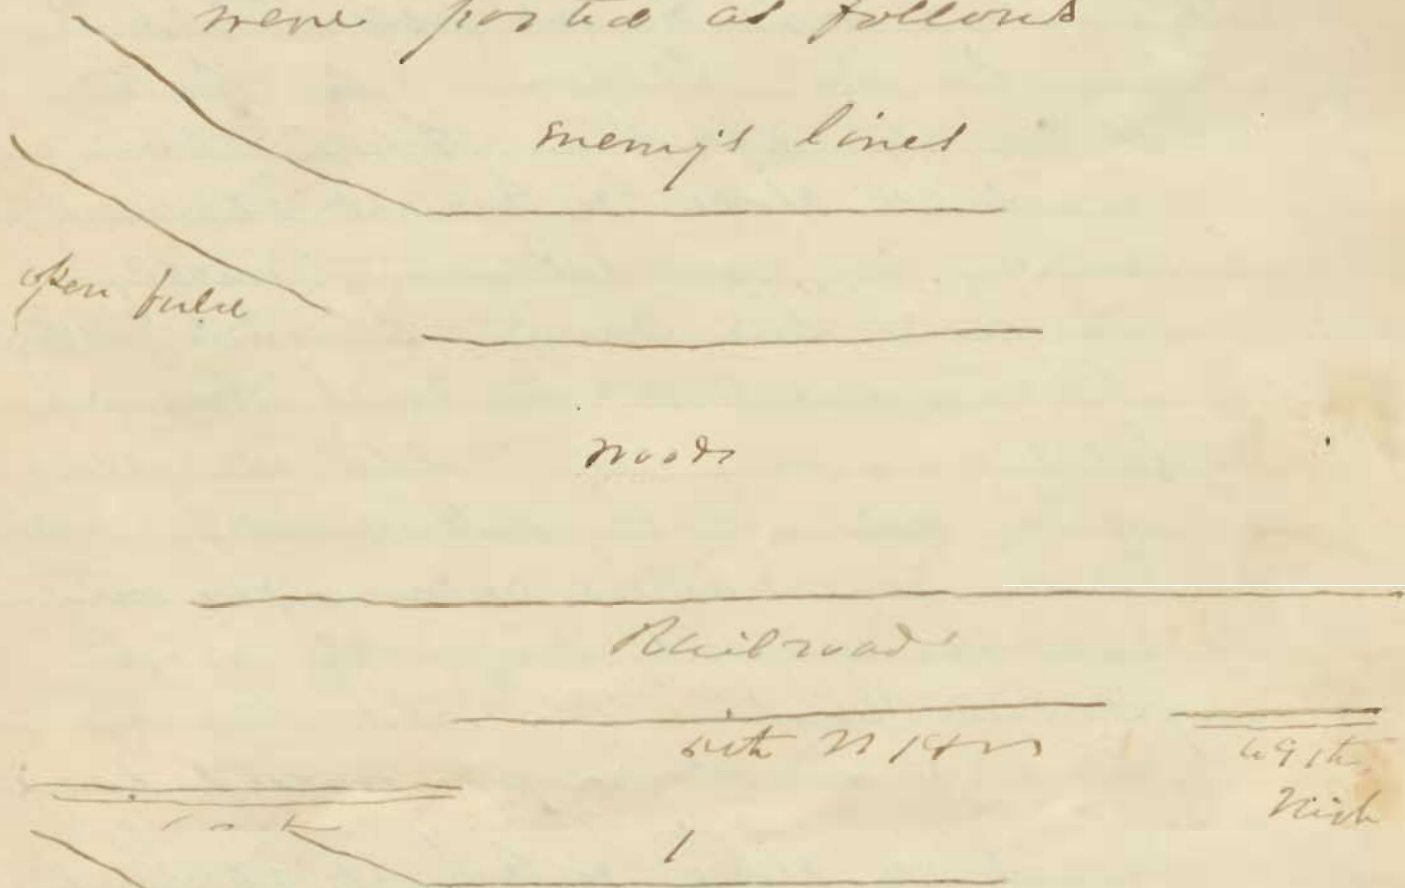 were posted as follows
enemy's lines
open field
woods
Railroad
N
th